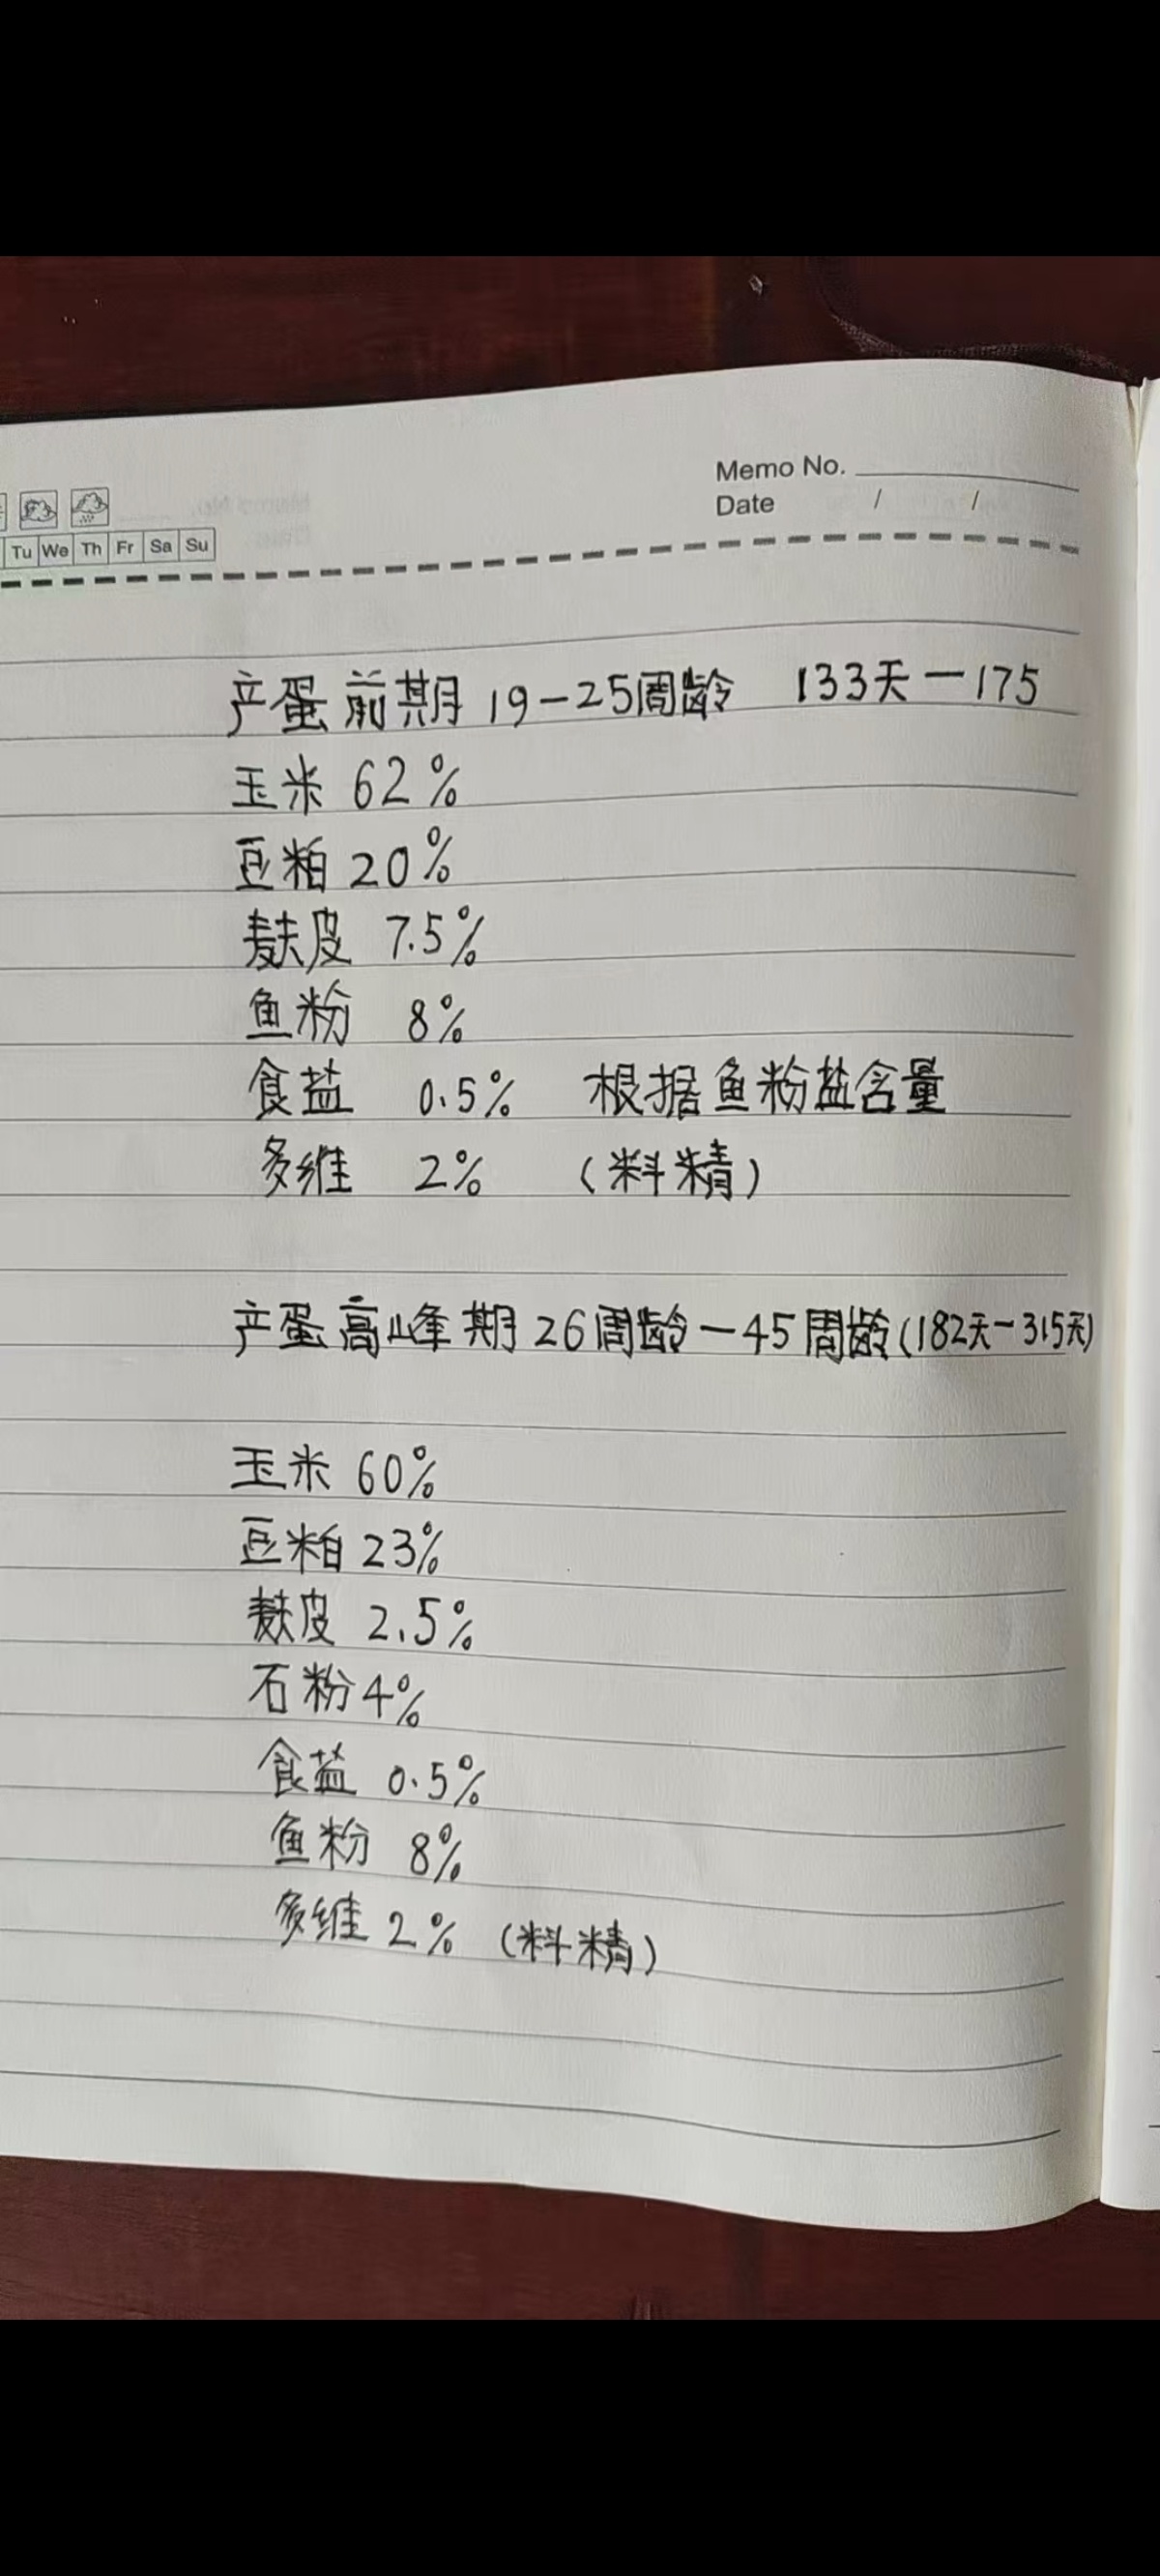 Memo No.
Date / /
Tu We Th Fr Sa Su
产蛋前期 19-25周龄 133天-175
玉米 62%
豆粕 20%
麸皮 7.5%
鱼粉 8%
食盐 0.5% 根据鱼粉盐含量
多维 2% (料精)
产蛋高峰期 26周龄-45周龄(182天-315天)
玉米 60%
豆粕 23%
麸皮 2.5%
石粉 4%
食盐 0.5%
鱼粉 8%
多维 2% (料精)